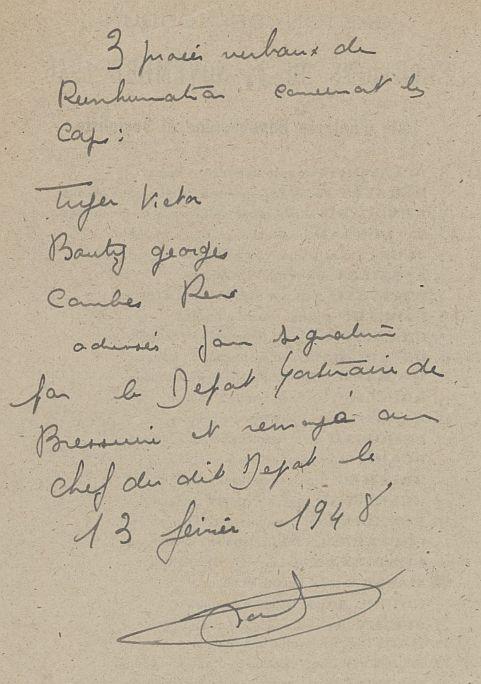 3 procès verbaux de
Reinhumation concernant les
Cap:
Victor
Bauty georges
Combes René
adressés pour signature
par le Depot Mortuaire de
Bressuire et renvoyé au
chef du dit Depot le
13 février 1948